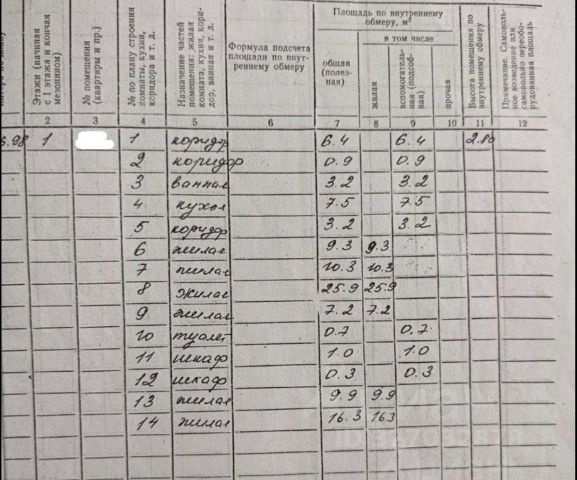 Площадь по внутреннему обмеру, м²
в том числе
Этажи (начиная с 1 этажа и кончая мезонином)
№ помещения (квартиры и пр.)
№ по плану строения комнаты, кухни, коридора и т. д.
Назначение частей помещения: жилая комната, кухня, коридор, ванная и т. д.
Формула подсчета площади по внутреннему обмеру
общая (полезная)
жилая
вспомогательная (подсобная)
прочая
Высота помещения по внутреннему обмеру
Примечание. Самовольное возведение или самовольно переоборудованная площадь
2 3 4 5 6 7 8 9 10 11 12
98 1 1 коридор 6.4 6.4 2.80
2 коридор 0.9 0.9
3 ванная 3.2 3.2
4 кухня 7.5 7.5
5 коридор 3.2 3.2
6 жилая 9.3 9.3
7 жилая 10.3 10.3
8 жилая 25.9 25.9
9 жилая 7.2 7.2
10 туалет 0.7 0.7
11 шкаф 1.0 1.0
12 шкаф 0.3 0.3
13 жилая 9.9 9.9
14 жилая 16.3 16.3